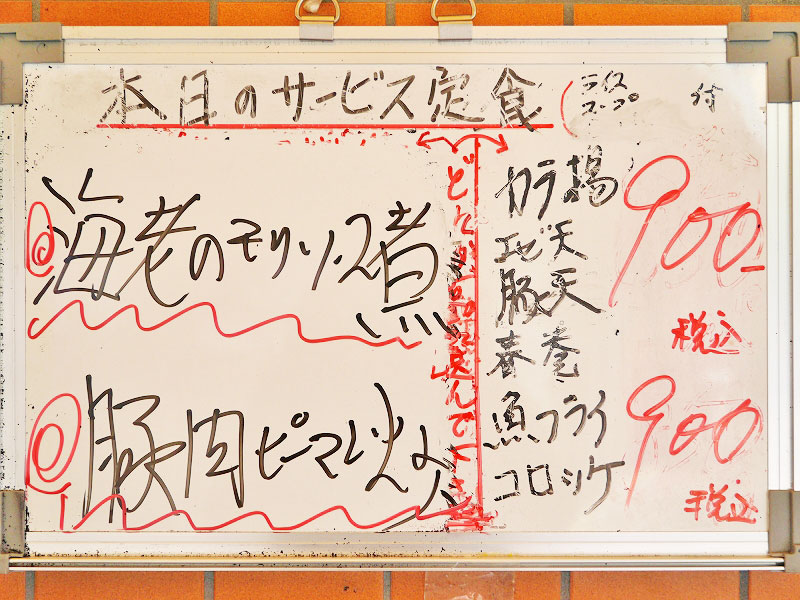 本日のサービス定食
ライス
スープ
付
海老のモリソース煮
豚肉ピーマン炒め
カラ揚
エビ天
豚天
春巻
魚フライ
コロッケ
900
税込
900
税込